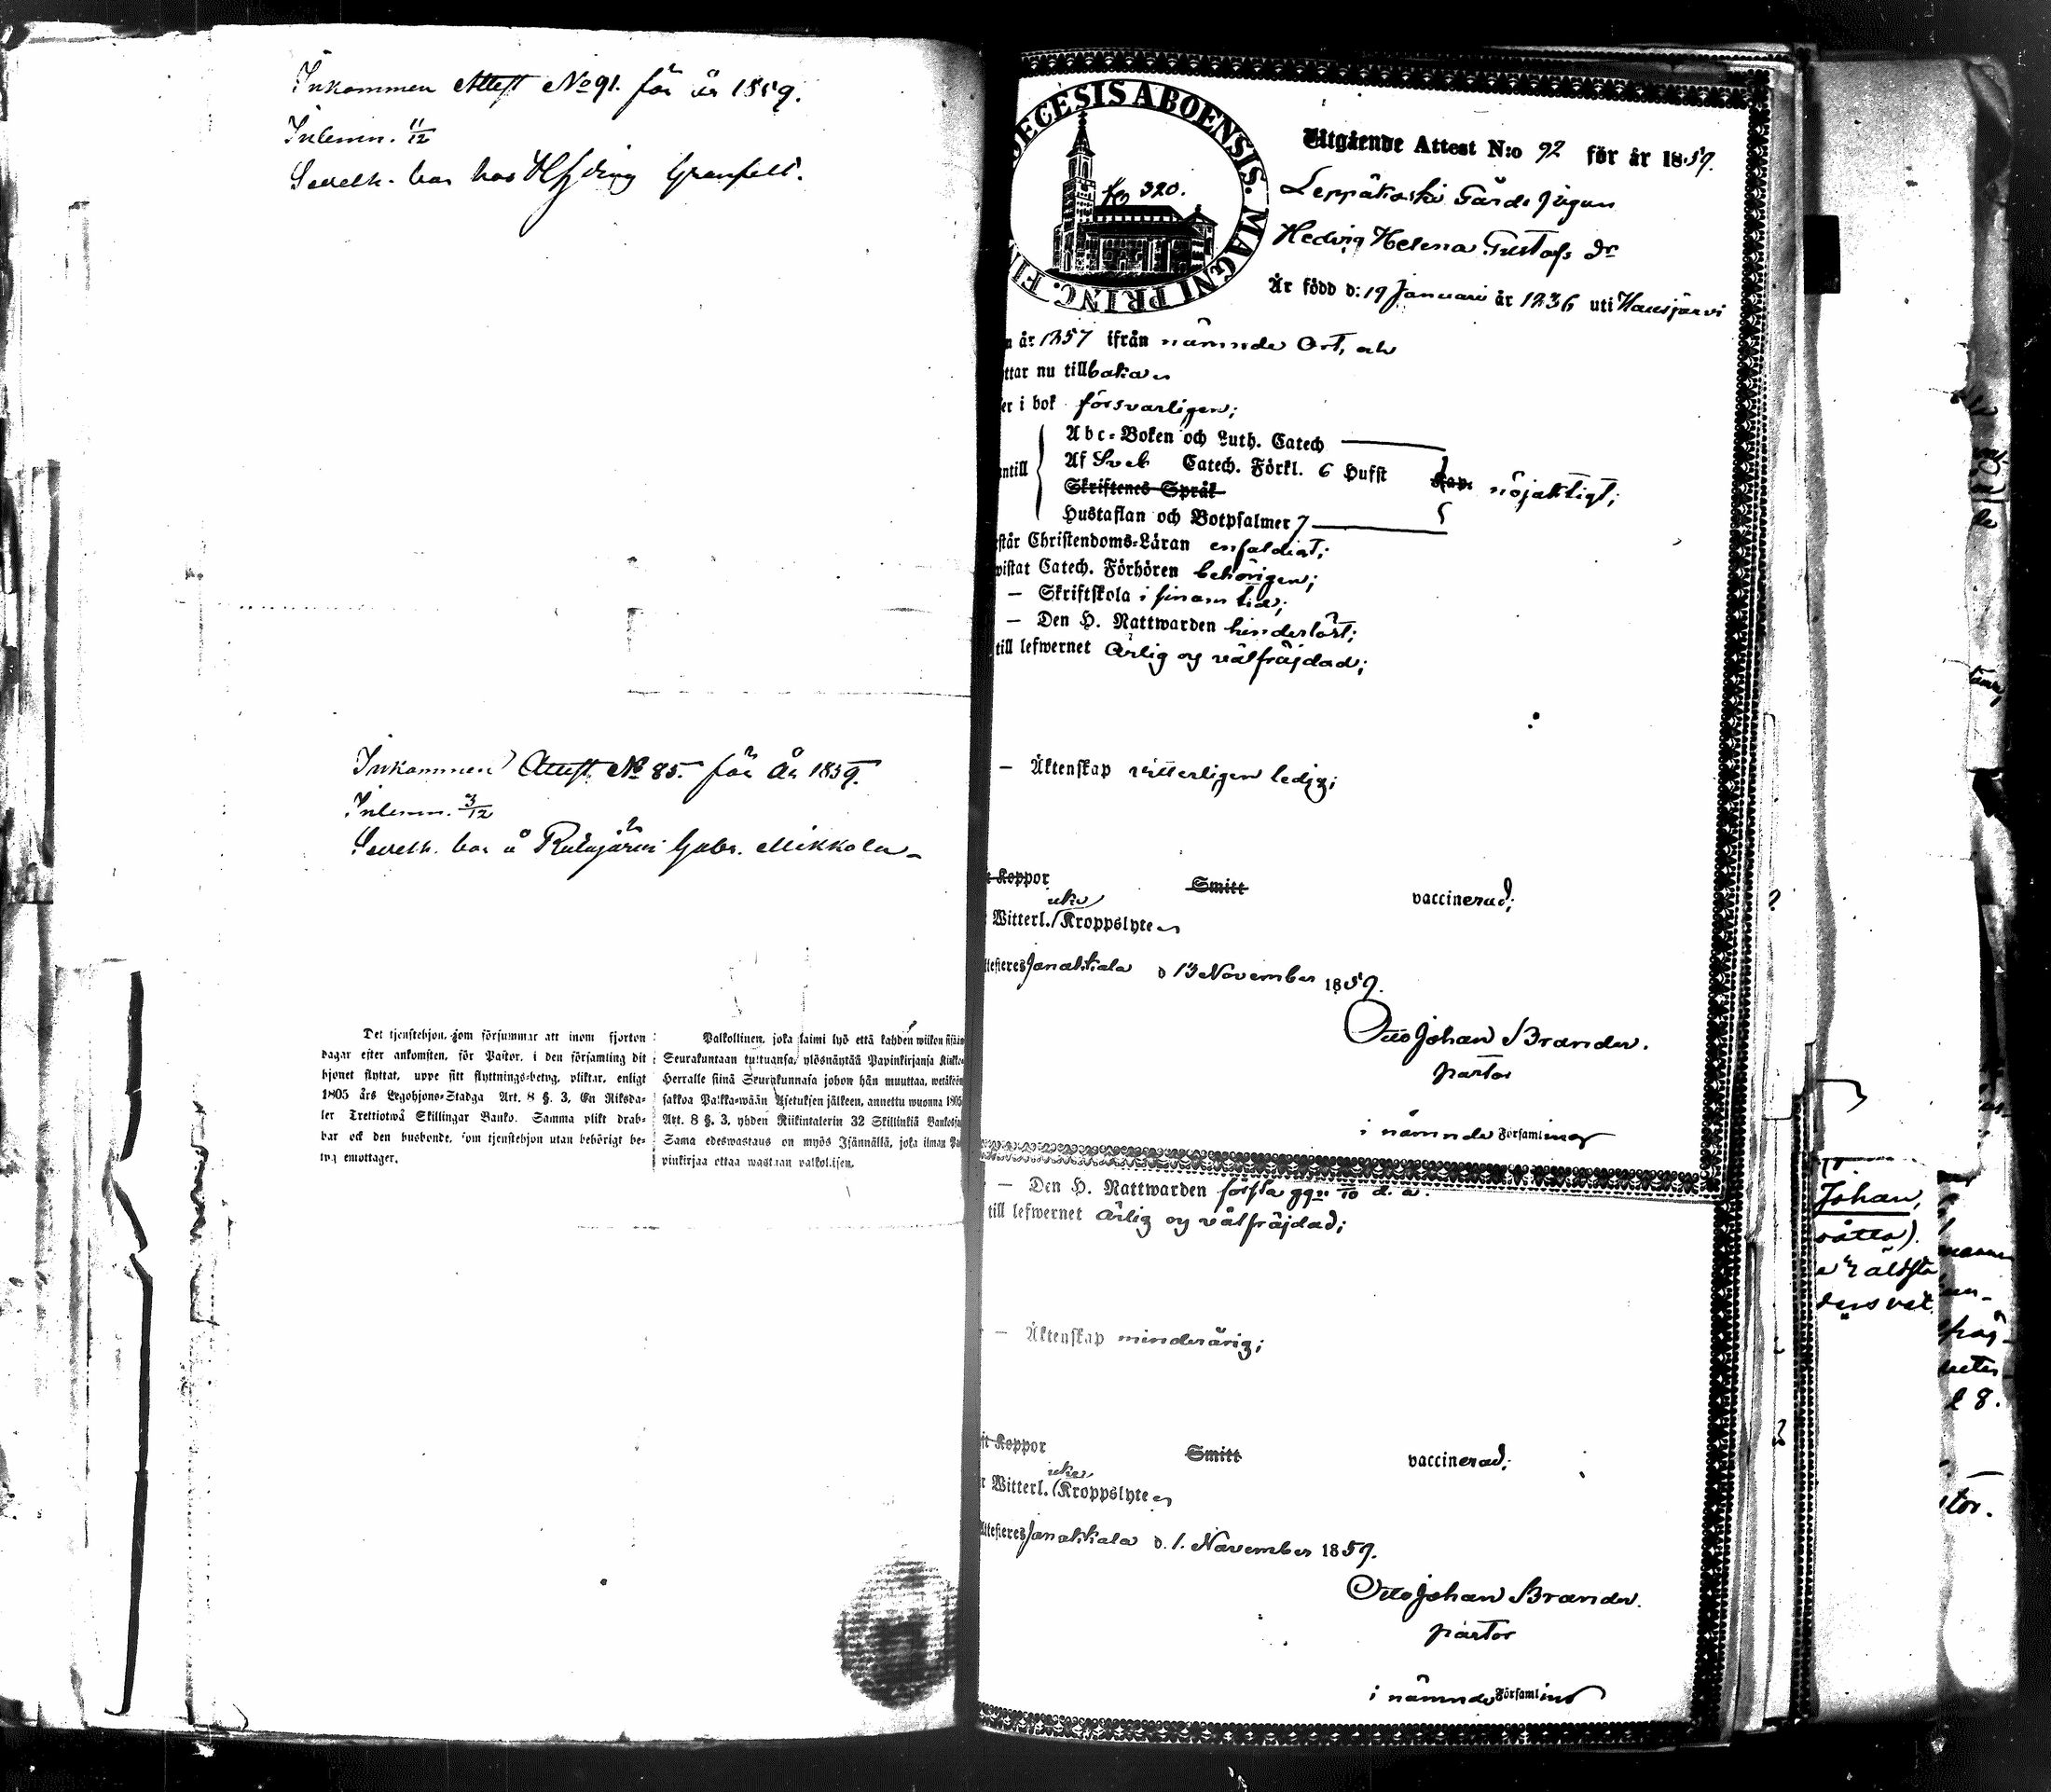 Inkommen Attest No 91. för år 1859.
Inlemn. 11/12
Inkommen Attest No 85. för år 1859.
Inlemn. 3/12
Gabr. Mikkola
Det tjenstehjon, som försummar att inom fjorton
dagar efter ankomsten, för Pastor, i den församling dit
hjonet flyttat, uppe sitt flyttnings-betyg, pliktar, enligt
1805 års Legohjons-Stadga Art. 8 §. 3, En Riksda-
ler Trettiotwå Skillingar Banko. Samma plikt drab-
bar ock den husbonde, som tjenstehjon utan behörigt be-
tyg emottager.
Palkollinen, joka laimi lyö että kahden wiikon sisään
Seurakuntaan tultuansa, ylösnäyttää Papinkirjansa Kirkko-
Herralle siinä Seurakunnasa johon hän muuttaa, wetäköön
sakkoa Palkka-wään Asetuksen jälkeen, annettu wuonna 1805
Art. 8 §. 3, yhden Riikintalerin 32 Skillinkiä Bankosa
Sama edeswastaus on myös Isännällä, joka ilman Pa-
pinkirjaa ottaa wastaan palkolisen.
DECESIS ABOENSIS. MAGNI PRINC. FIN
320.
Utgående Attest N:o 92 för år 1859.
Leppäkoski Gårds pigan
Hedvig Helena Gustafs dr
Är född d: 19 Januari år 1836 uti Hausjärvi
n år 1857 ifrån nämnde Ort, och
ttar nu tillbaka
er i bok försvarligen;
Abc-Boken och Luth. Catech
Af Sveb Catech. Förkl. 6 Hufst
ntill
Skriftenes Språk
Kap. nöjaktigt;
Hustaflan och Botpsalmer 7
rstår Christendoms-Läran enfaldigt;
vistat Catech. Förhören behörigen;
— Skriftskola i sinom tid;
— Den H. Nattwarden hinderlöst;
till lefwernet ärlig og välfräjdad;
— Äktenskap vitterligen ledig;
Koppor Smitt vaccinerad;
Witterl. Kroppslyte
ttesteres Janakkala d 13 November 1859.
Otto Johan Brander.
pastor
i nämnde Församling
— Den H. Nattwarden första
till lefwernet ärlig og välfräjdad;
— Äktenskap minderårig;
Koppor Smitt vaccinerad;
r Witterl. Kroppslyte
ttesteres Janakkala d. 1. November 1859.
Otto Johan Brander.
pastor
i nämnde Församling
Johan,